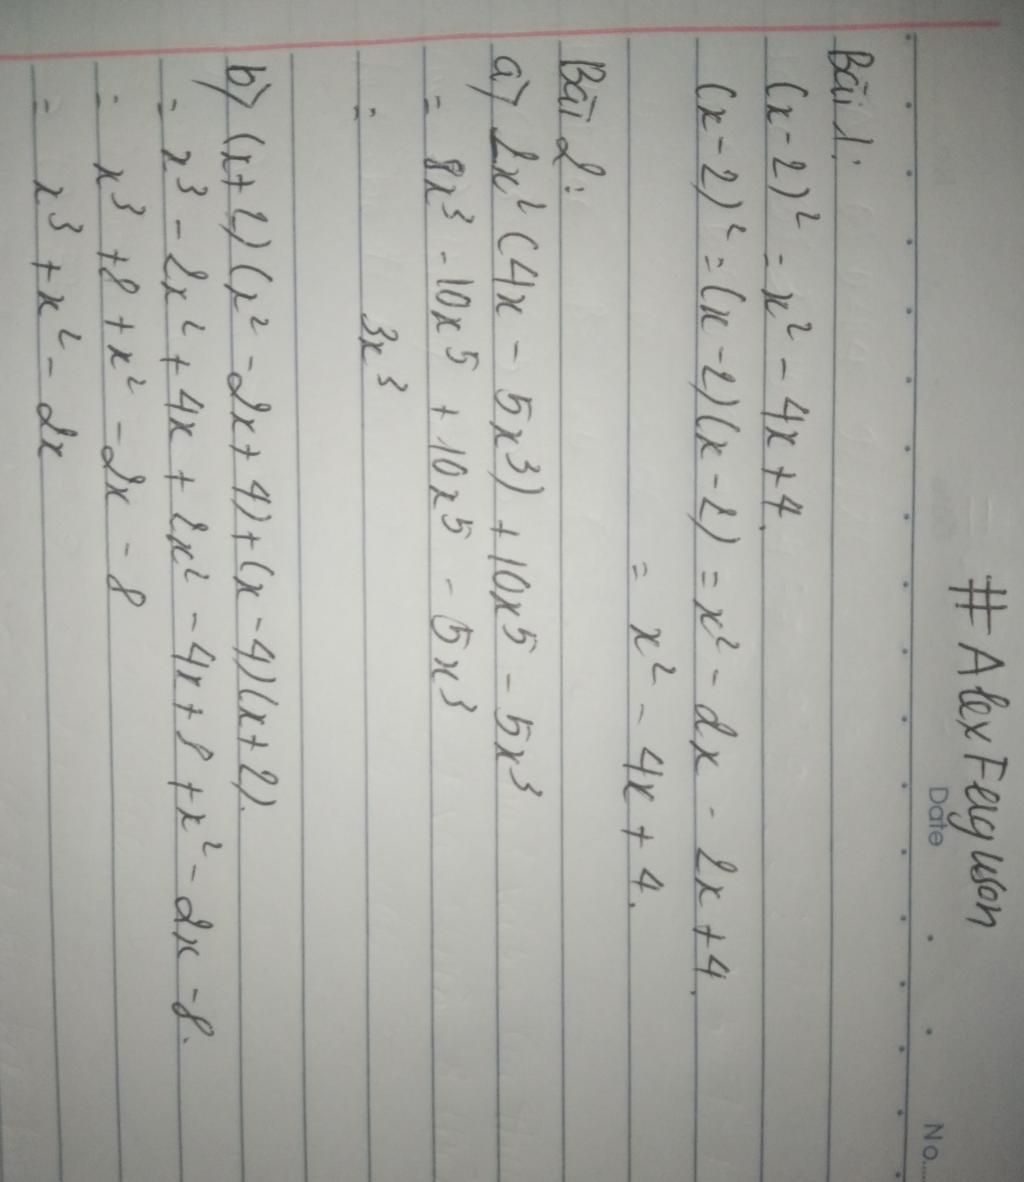 #AlexFerguson
Date
No.....
Bài 1:
(x-2)² = x² - 4x + 4.
(x-2)² = (x-2)(x-2) = x² - 2x - 2x + 4.
= x² - 4x + 4.
Bài 2:
a) 2x² (4x - 5x³) + 10x⁵ - 5x³
= 8x³ - 10x⁵ + 10x⁵ - 5x³
= 3x³
b) (x+2)(x² - 2x + 4) + (x-4)(x+2).
= x³ - 2x² + 4x + 2x² - 4x + 8 + x² - 2x - 8.
= x³ + 8 + x² - 2x - 8
= x³ + x² - 2x